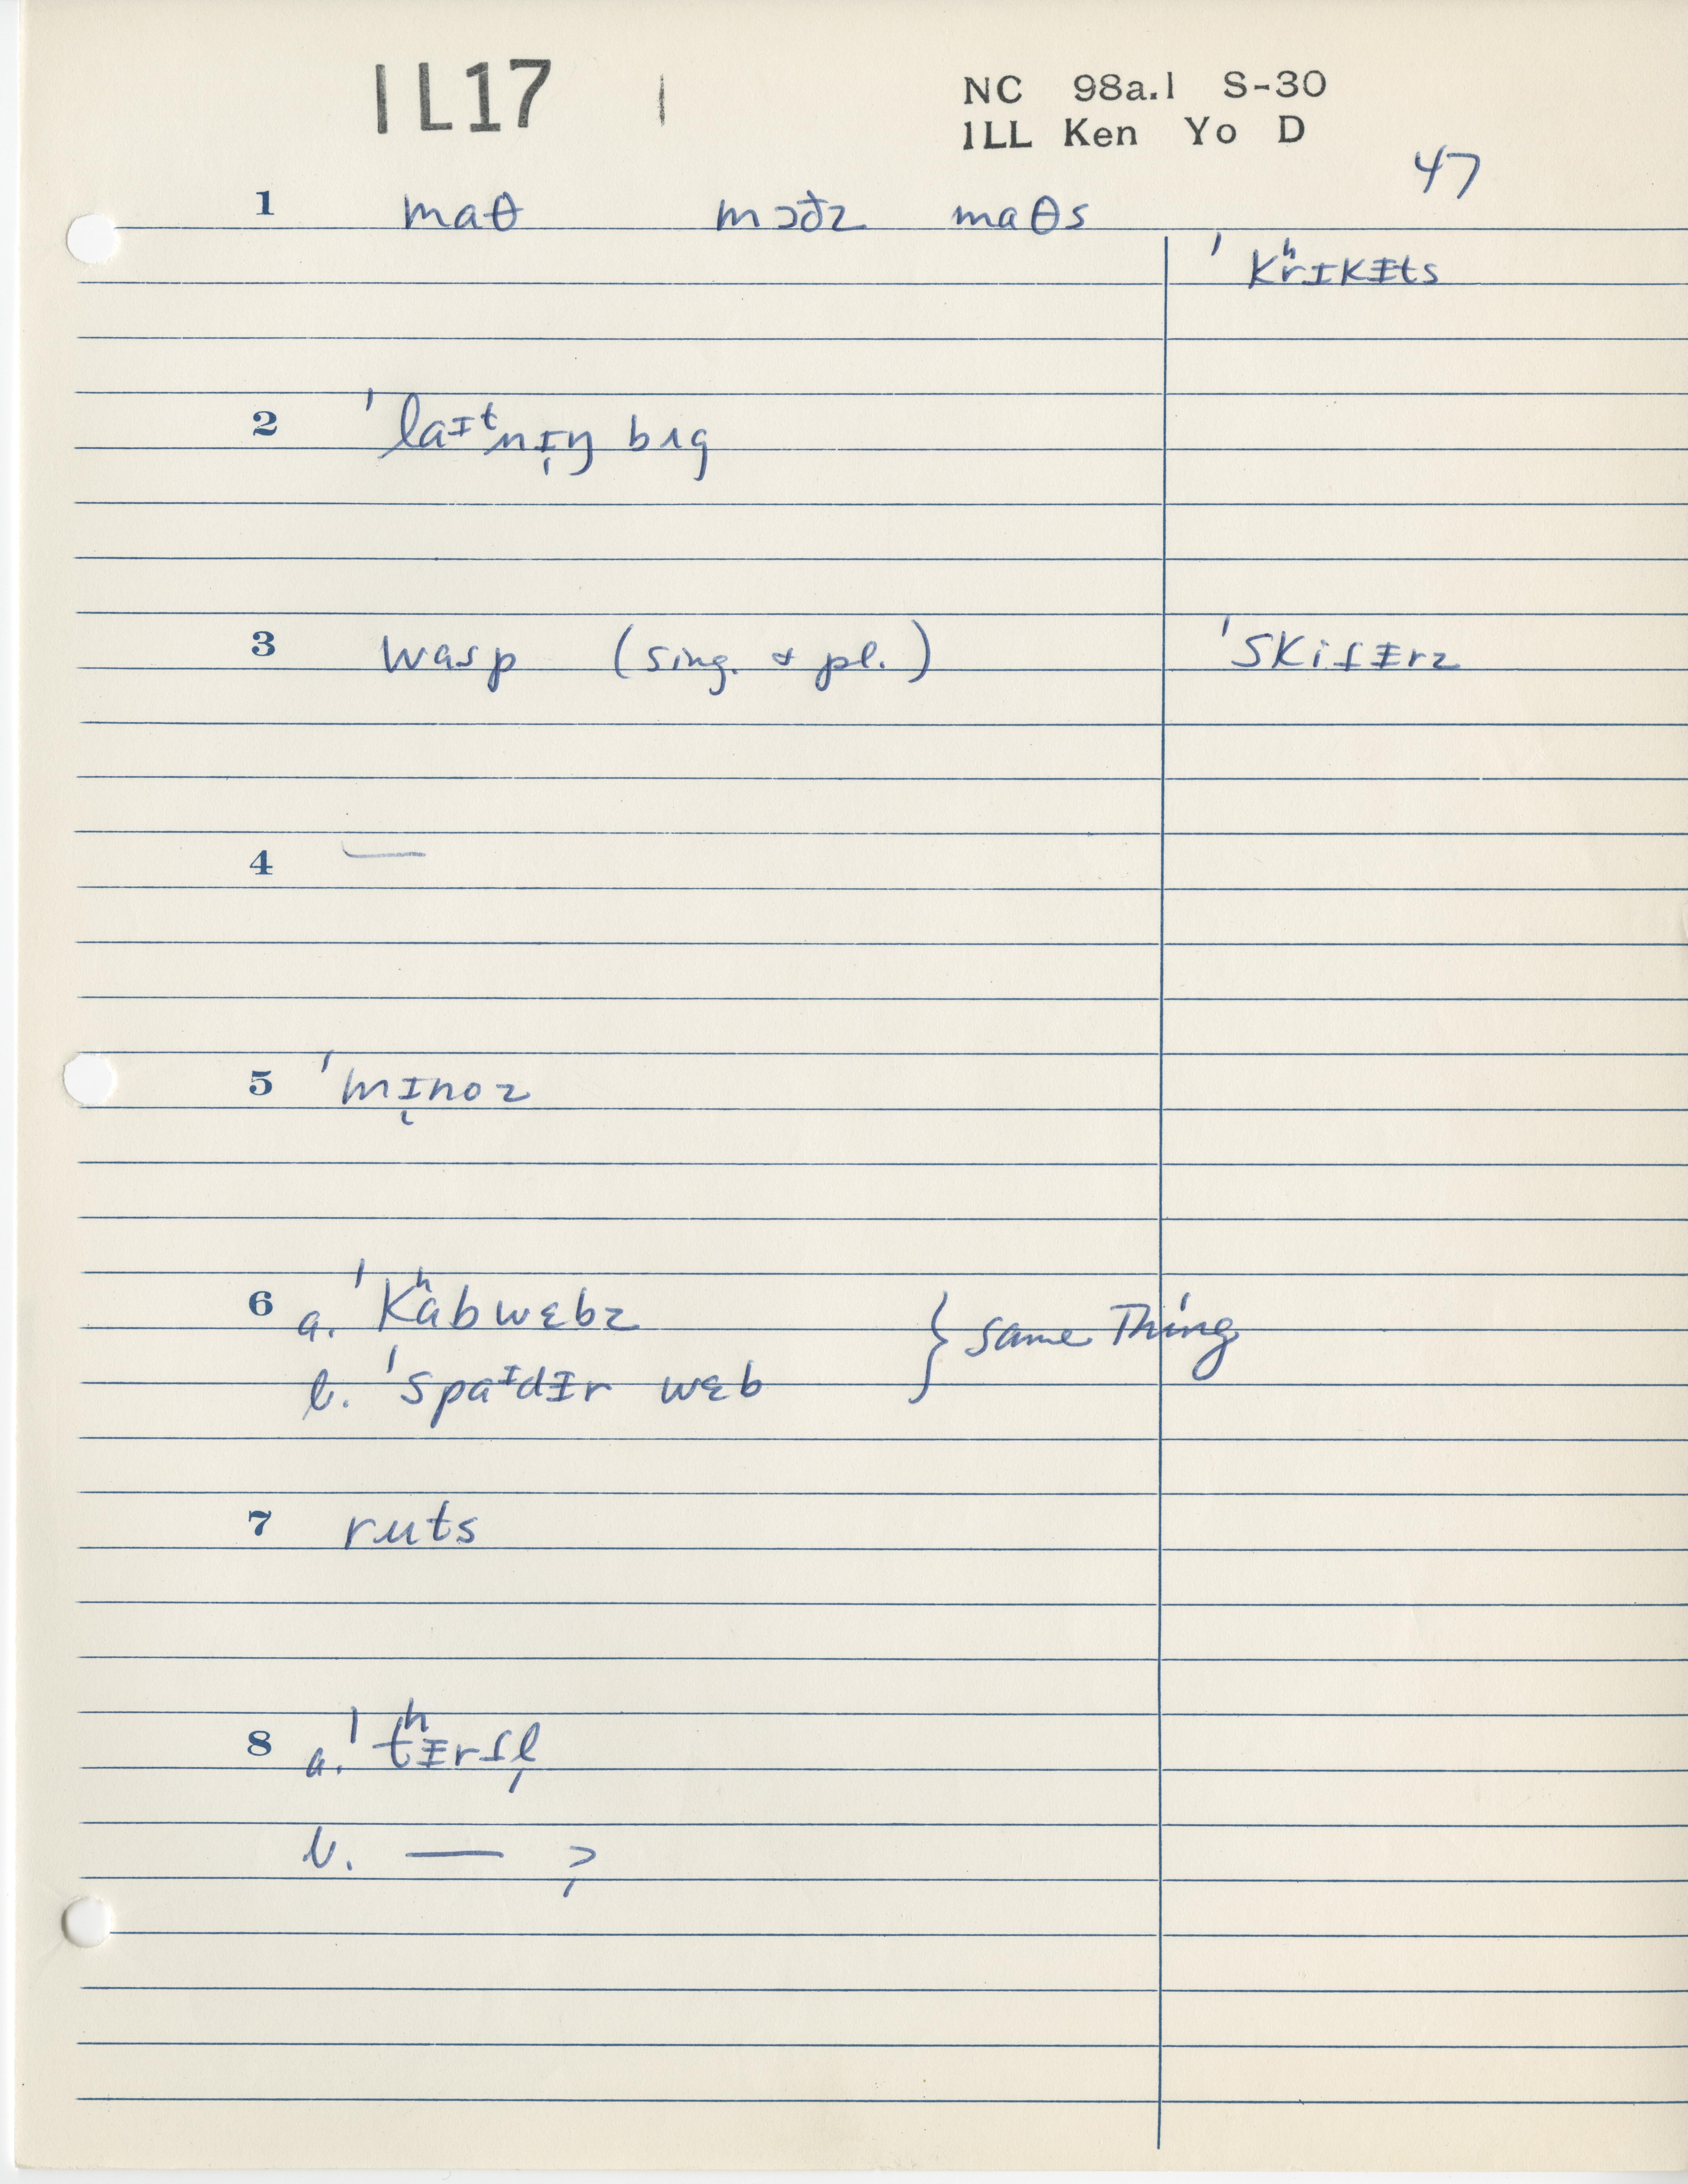 IL17 1
NC 98a.1 S-30
ILL Ken Yo D
47
1 maθ mɔðz maθs
ˈkʰrɪkᵻts
2 ˈlaɪᵗnɪ̨ŋ bʌg
3 wasp (sing. & pl.)
ˈskitᵻrz
4 —
5 ˈmɪ̨noz
6 a. ˈkʰabwɛbz } same Thing
b. ˈspaɪdᵻr wɛb
7 ruts
8 a. ˈtʰᵻrtl̩
b. — ?